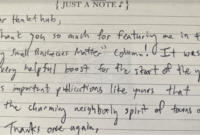 { JUST A NOTE }
ank you so much for featuring me in t
Small Businesses Matter" Column! It was
ery helpful boost for the start of the y
s important publications like yours that
the charming neighborly spirit of towns o
Thanks once again,